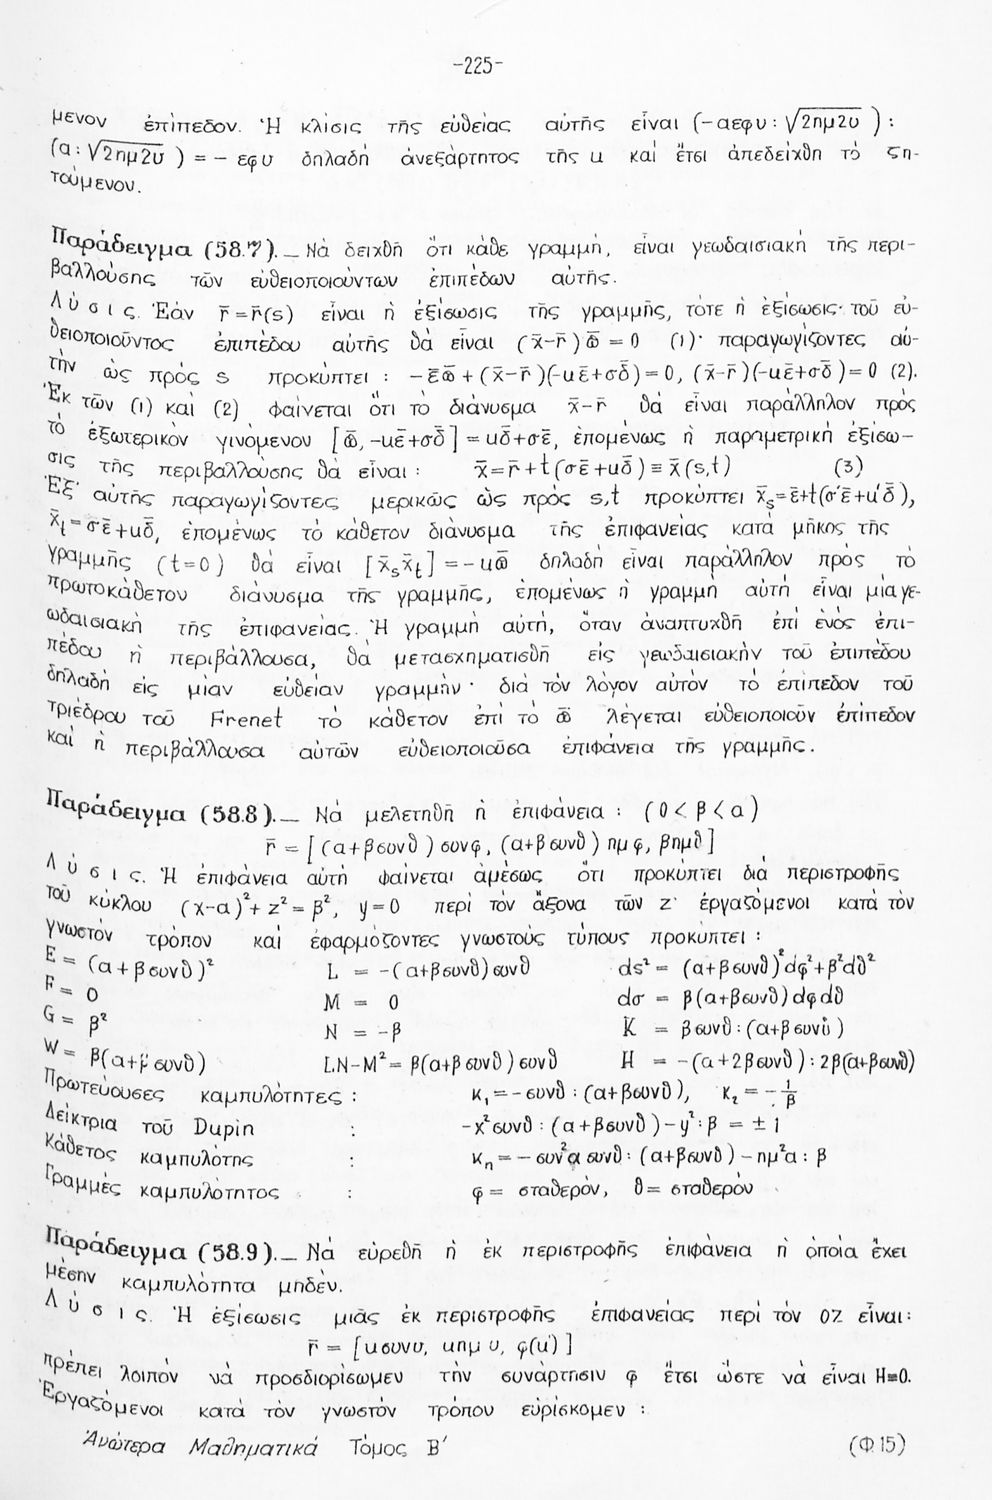 -225-
μενον ἐπίπεδον. Ἡ κλίσις τῆς εὐθείας αὐτῆς εἶναι (-αεφυ : √2ημ2υ ) :
(α : √2ημ2υ ) = - εφυ δηλαδή ἀνεξάρτητος τῆς u καί ἔτσι ἀπεδείχθη τό ζη-
τούμενον.
Παράδειγμα (58.7)._ Νά δειχθῆ ὅτι κάθε γραμμή, εἶναι γεωδαισιακή τῆς περι-
βαλλούσης τῶν εὐθειοποιούντων ἐπιπέδων αὐτῆς.
Λύσις. Ἐάν r̄ = r̄(s) εἶναι ἡ ἐξίσωσις τῆς γραμμῆς, τότε ἡ ἐξίσωσις τοῦ εὐ-
θειοποιοῦντος ἐπιπέδου αὐτῆς θά εἶναι (x̄-r̄)ω̄ = 0 (1)· παραγωγίζοντες αὐ-
τήν ὡς πρός s προκύπτει : -ε̄ω̄ + (x̄-r̄)(-uε̄+σδ̄) = 0, (x̄-r̄)(-uε̄+σδ̄) = 0 (2).
Ἐκ τῶν (1) καί (2) φαίνεται ὅτι τό διάνυσμα x̄-r̄ θά εἶναι παράλληλον πρός
τό ἐξωτερικόν γινόμενον [ω̄, -uε̄+σδ̄] = uδ̄+σε̄, ἑπομένως ἡ παραμετρική ἐξίσω-
σις τῆς περιβαλλούσης θά εἶναι : x̄ = r̄ + t(σε̄+uδ̄) ≡ x̄(s,t) (3)
Ἐξ αὐτῆς παραγωγίζοντες μερικῶς ὡς πρός s,t προκύπτει x̄ₛ = ε̄+t(σ'ε̄+u'δ̄),
x̄ₜ = σε̄+uδ̄, ἑπομένως τό κάθετον διάνυσμα τῆς ἐπιφανείας κατά μῆκος τῆς
γραμμῆς (t=0) θά εἶναι [x̄ₛx̄ₜ] = -uω̄ δηλαδή εἶναι παράλληλον πρός τό
πρωτοκάθετον διάνυσμα τῆς γραμμῆς, ἑπομένως ἡ γραμμή αὐτή εἶναι μία γε-
ωδαισιακή τῆς ἐπιφανείας. Ἡ γραμμή αὐτή, ὅταν ἀναπτυχθῆ ἐπί ἑνός ἐπι-
πέδου ἡ περιβάλλουσα, θά μετασχηματισθῆ εἰς γεωδαισιακήν τοῦ ἐπιπέδου
δηλαδή εἰς μίαν εὐθείαν γραμμήν · διά τόν λόγον αὐτόν τό ἐπίπεδον τοῦ
τριέδρου τοῦ Frenet τό κάθετον ἐπί τό ω̄ λέγεται εὐθειοποιοῦν ἐπίπεδον
καί ἡ περιβάλλουσα αὐτῶν εὐθειοποιοῦσα ἐπιφάνεια τῆς γραμμῆς.
Παράδειγμα (58.8)._ Νά μελετηθῆ ἡ ἐπιφάνεια : (0 < β < α)
r̄ = [(α+βσυνθ) συνφ, (α+βσυνθ) ημφ, βημθ]
Λύσις. Ἡ ἐπιφάνεια αὐτή φαίνεται ἀμέσως ὅτι προκύπτει διά περιστροφῆς
τοῦ κύκλου (x-α)²+ z² = β², y=0 περί τόν ἄξονα τῶν z· ἐργαζόμενοι κατά τόν
γνωστόν τρόπον καί ἐφαρμόζοντες γνωστούς τύπους προκύπτει :
E = (α+βσυνθ)² L = -(α+βσυνθ)συνθ ds² = (α+βσυνθ)²dφ²+β²dθ²
F = 0 M = 0 dσ = β(α+βσυνθ)dφdθ
G = β² N = -β K = βσυνθ : (α+βσυνθ)
W = β(α+βσυνθ) LN-M² = β(α+βσυνθ)συνθ H = -(α+2βσυνθ) : 2β(α+βσυνθ)
Πρωτεύουσες καμπυλότητες : κ₁ = -συνθ : (α+βσυνθ), κ₂ = -1/β
Δείκτρια τοῦ Dupin : -x²συνθ : (α+βσυνθ) - y² : β = ± 1
Κάθετος καμπυλότης : κₙ = -συν²α συνθ : (α+βσυνθ) - ημ²α : β
Γραμμές καμπυλότητος : φ = σταθερόν, θ = σταθερόν
Παράδειγμα (58.9)._ Νά εὑρεθῆ ἡ ἐκ περιστροφῆς ἐπιφάνεια ἡ ὁποία ἔχει
μέσην καμπυλότητα μηδέν.
Λύσις. Ἡ ἐξίσωσις μιᾶς ἐκ περιστροφῆς ἐπιφανείας περί τόν OZ εἶναι :
r̄ = [uσυνυ, uημυ, φ(u)]
πρέπει λοιπόν νά προσδιορίσωμεν τήν συνάρτησιν φ ἔτσι ὥστε νά εἶναι H≡0.
Ἐργαζόμενοι κατά τόν γνωστόν τρόπον εὑρίσκομεν :
Ἀνώτερα Μαθηματικά Τόμος Β΄ (Φ.15)